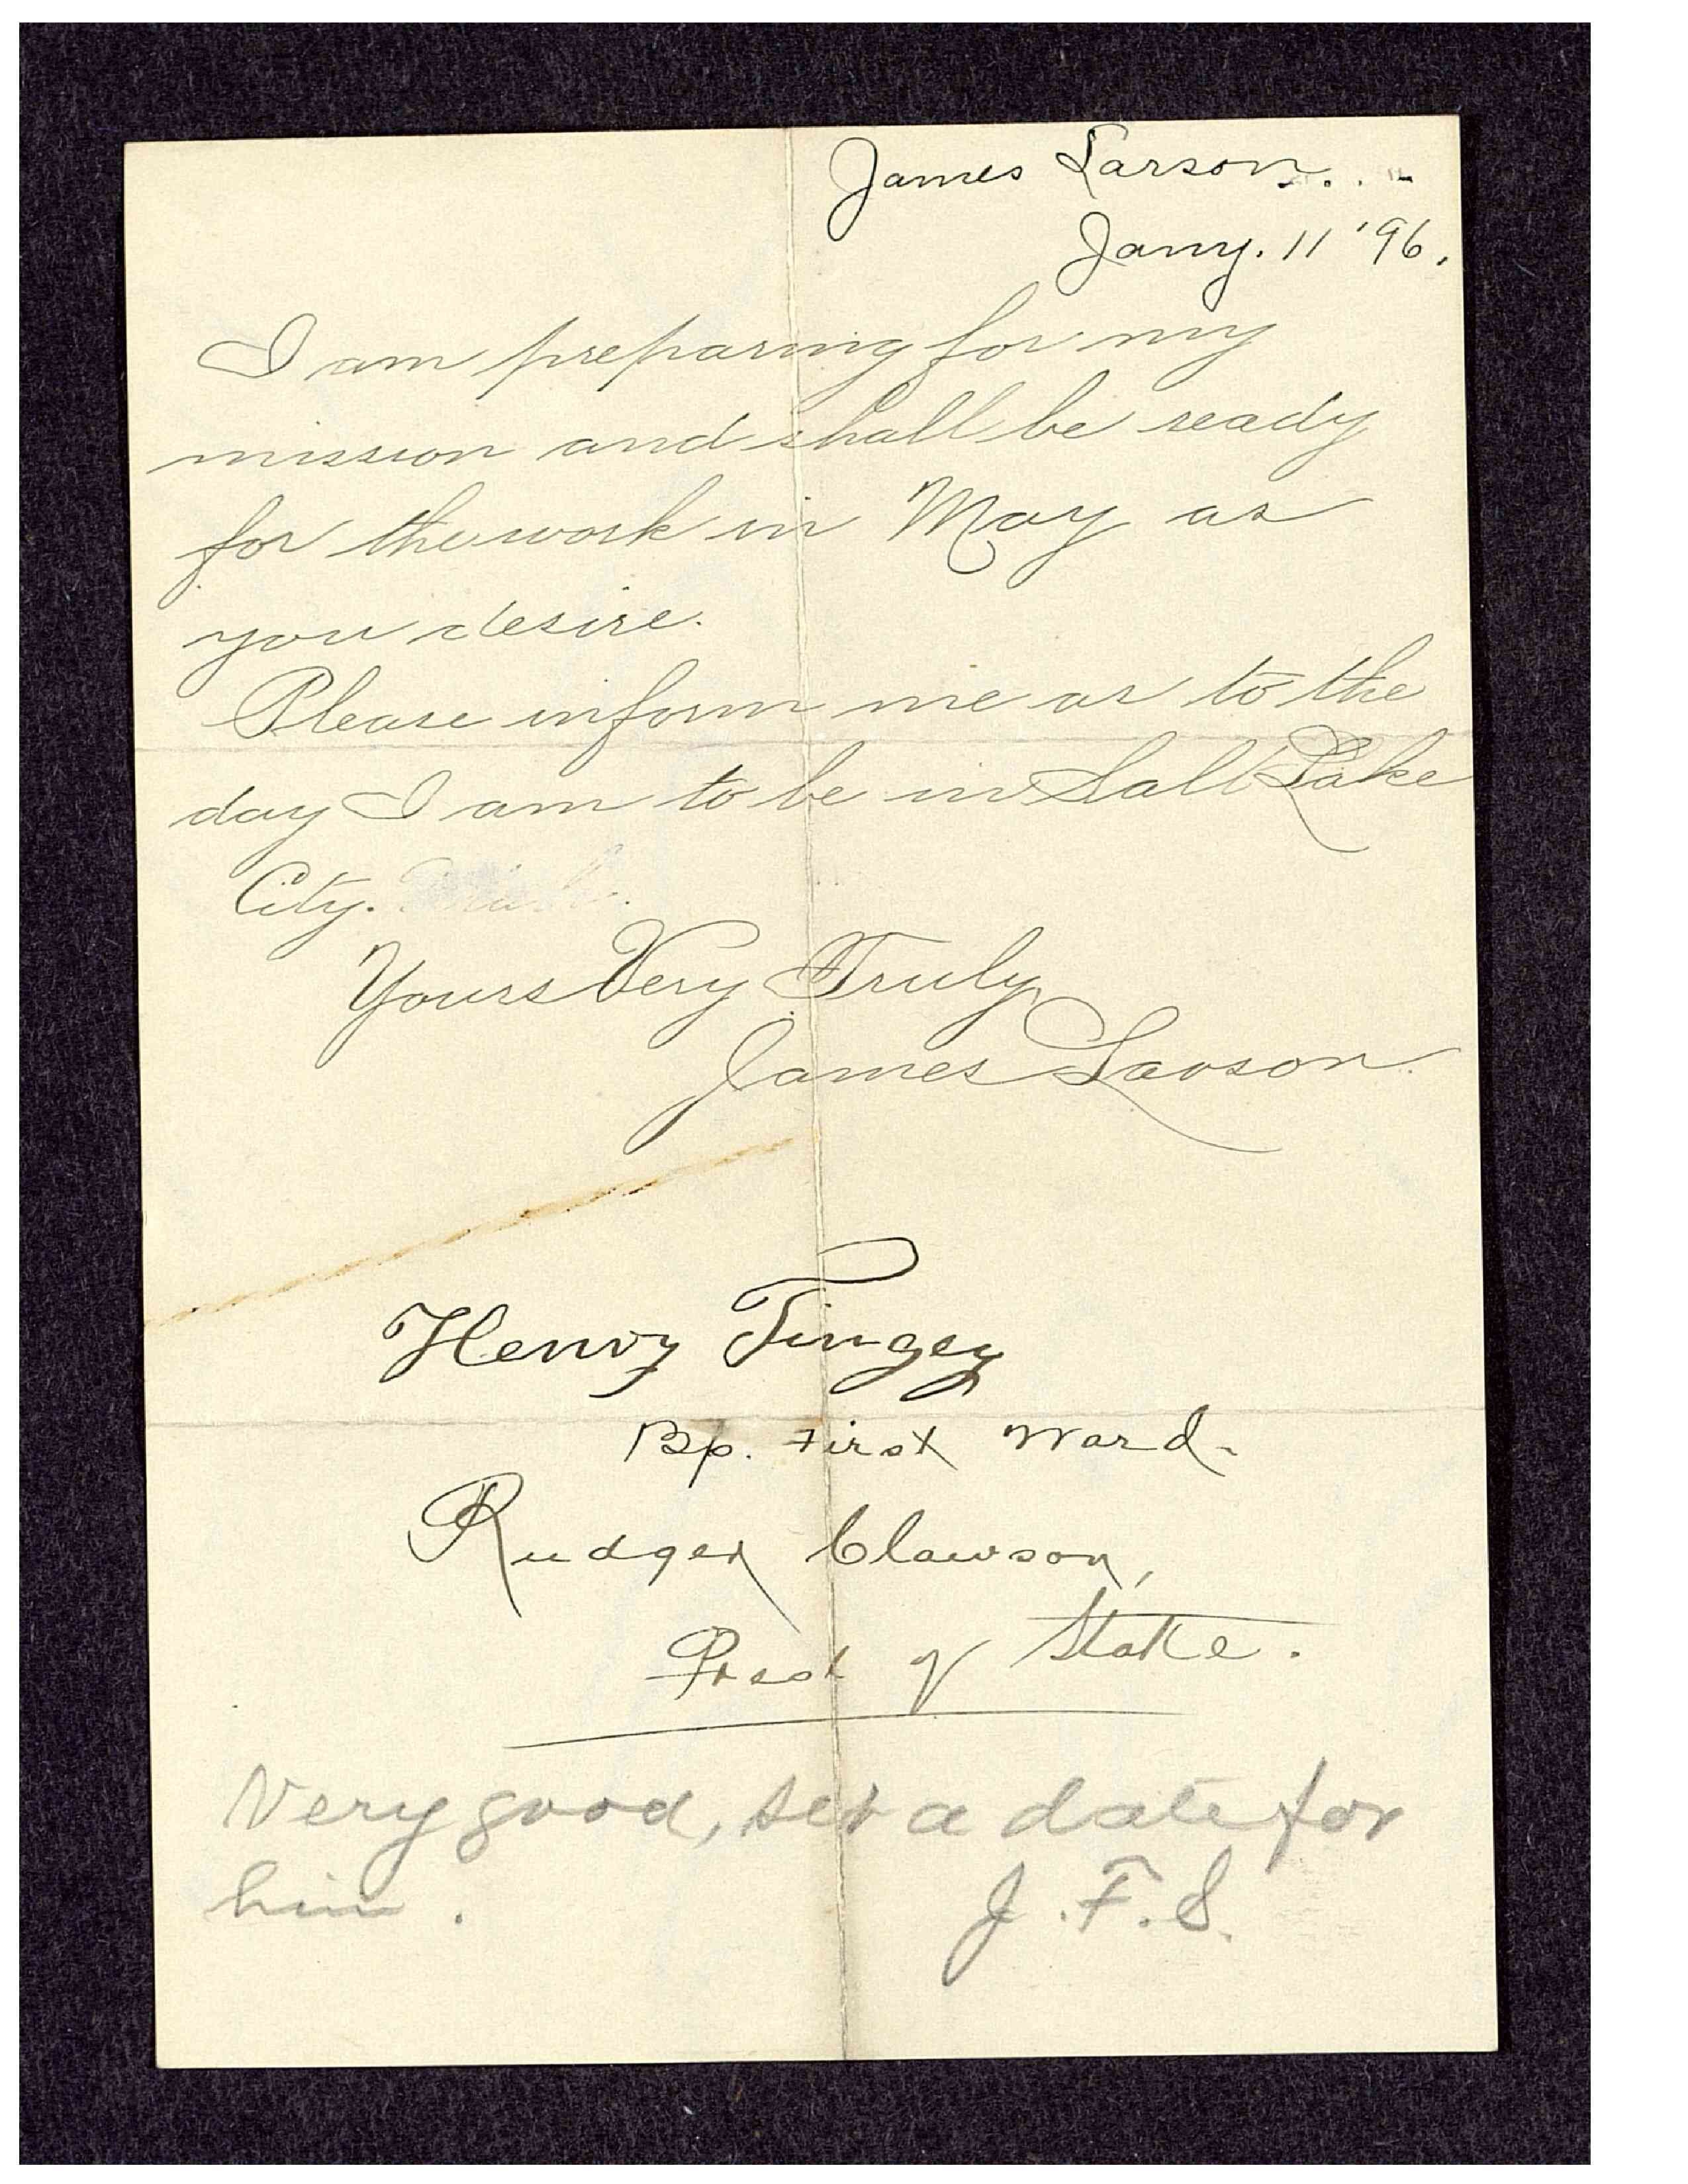 James Larson.
Jany. 11 '96.
I am preparing for my
mission and shall be ready
for the work in May as
you desire.
Please inform me as to the
day I am to be in Salt Lake
City.
Yours Very Truly,
James Larson.
Henry Tingey
Bp. First Ward.
Rudger Clawson,
Prest of Stake.
Very good, set a date for
him. J. F. S.